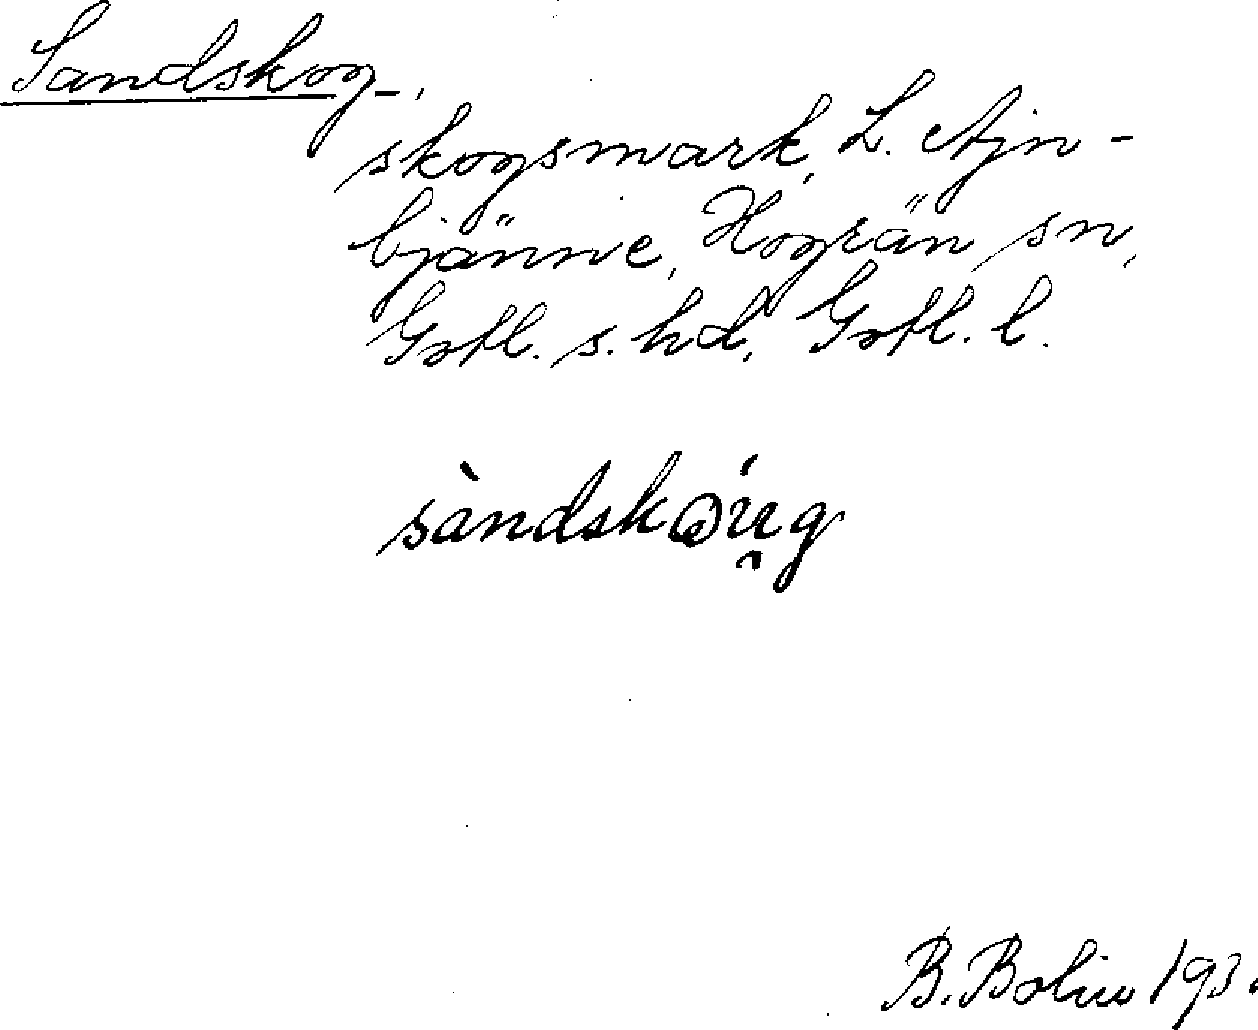 Sandskog-,
skogsmark, L. Ajn-
bjänne, Hogrän sn,
Gotl. s. hd, Gotl. l.
sàndskǝúg
B. Bolin